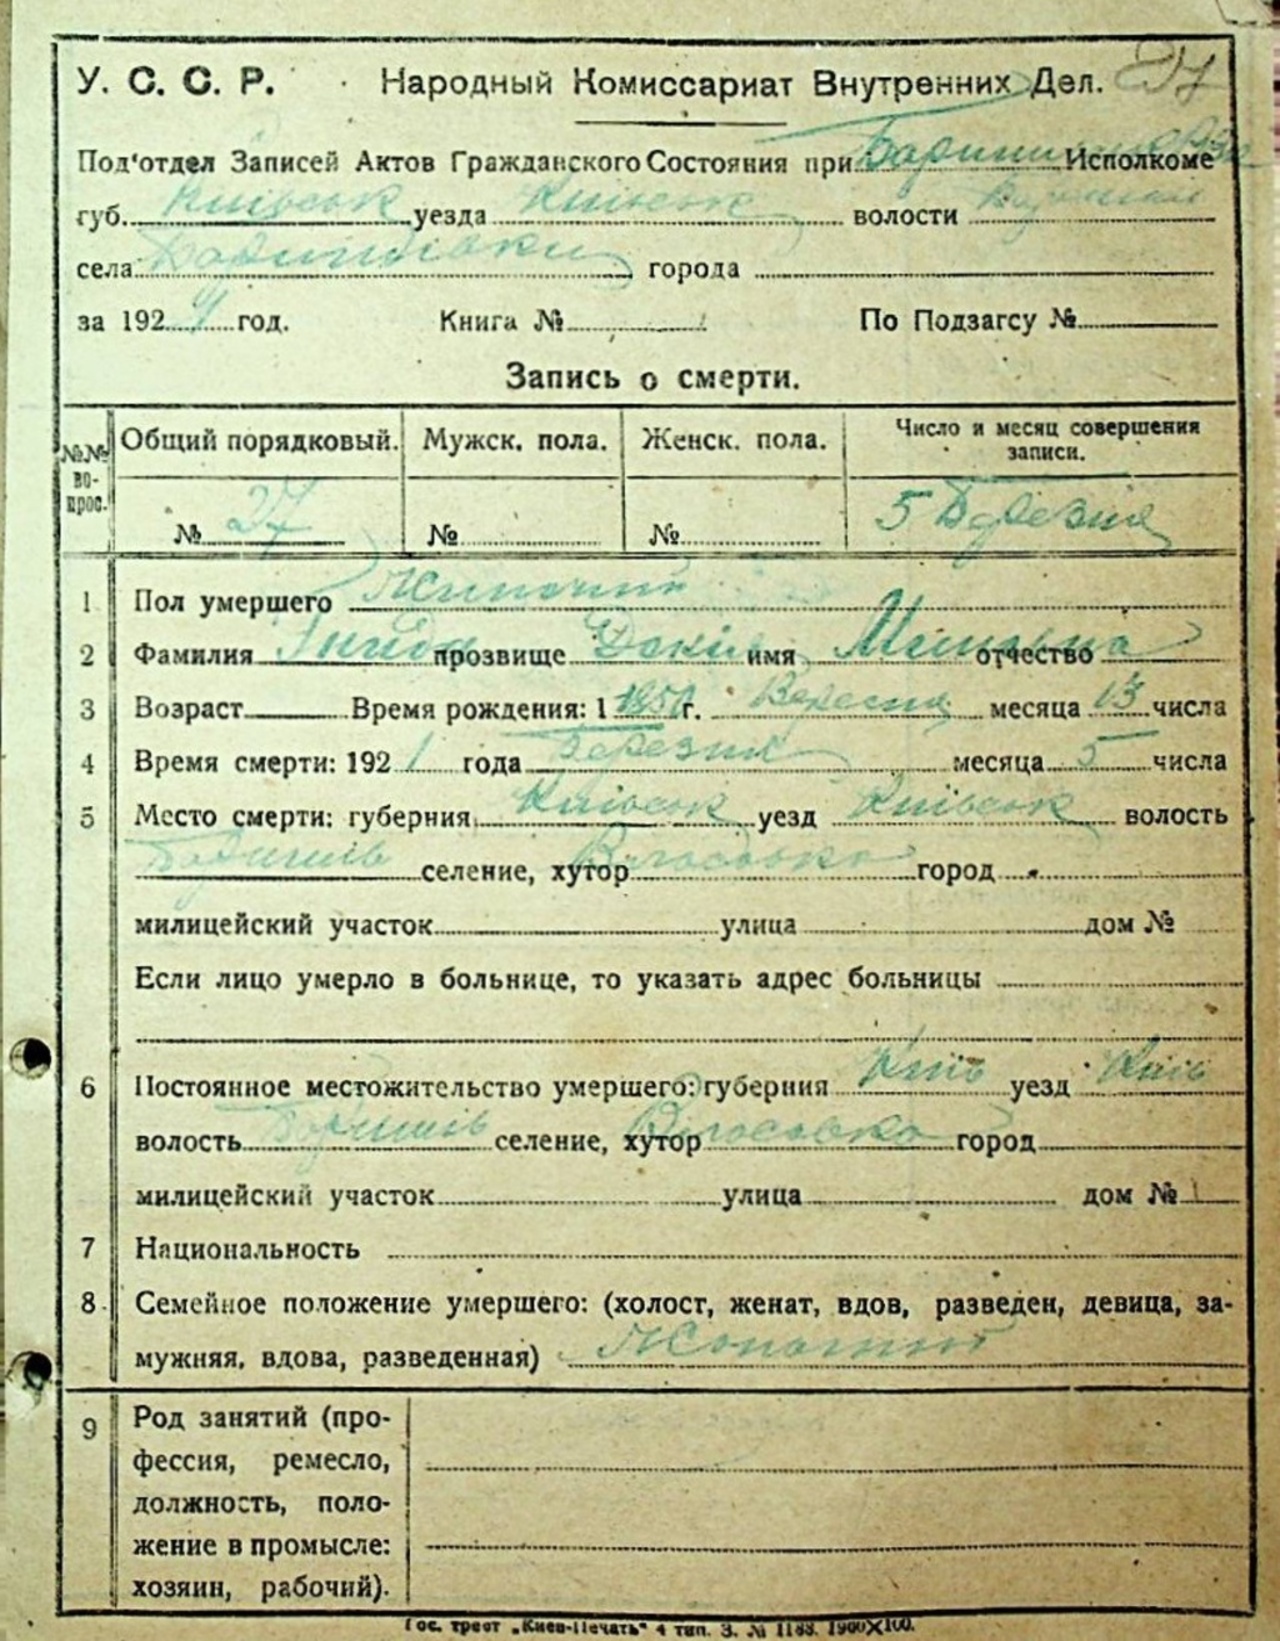 У. С. С. Р. Народный Комиссариат Внутренних Дел. 27
Под'отдел Записей Актов Гражданского Состояния при Исполкоме
губ. Київськ уезда Київськ волости
села города
за 192 год. Книга № По Подзагсу №
Запись о смерти.
№№ вопрос. Общий порядковый. Мужск. пола. Женск. пола. Число и месяц совершения записи.
№ 27 № № 5 Березня
1 Пол умершего
2 Фамилия прозвище имя отчество
3 Возраст Время рождения: 1 г. Вересня месяца 13 числа
4 Время смерти: 192 1 года Березня месяца 5 числа
5 Место смерти: губерния Київськ уезд Київськ волость
селение, хутор город
милицейский участок улица дом №
Если лицо умерло в больнице, то указать адрес больницы
6 Постоянное местожительство умершего: губерния Київ уезд Київ
волость селение, хутор город
милицейский участок улица дом №
7 Национальность
8 Семейное положение умершего: (холост, женат, вдов, разведен, девица, за-
мужняя, вдова, разведенная)
9 Род занятий (про-
фессия, ремесло,
должность, поло-
жение в промысле:
хозяин, рабочий).
Гос. трест „Киев-Печать“ 4 тип. З. № 1188. 1900X100.